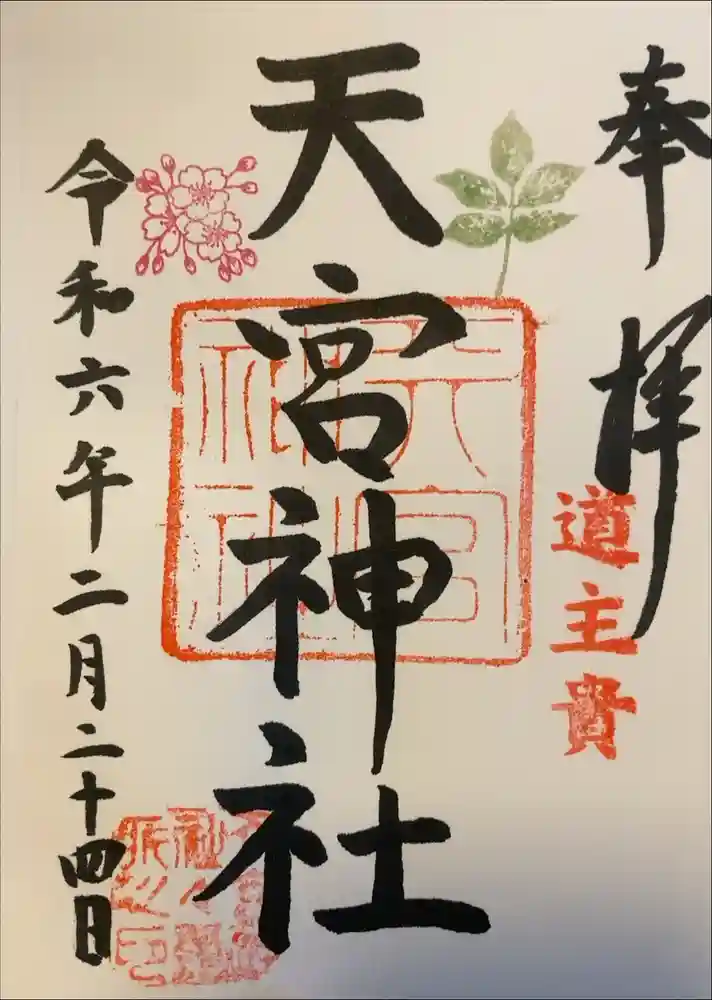 奉拝
道主貴
天宮神社
天宮神社
令和六年二月二十四日